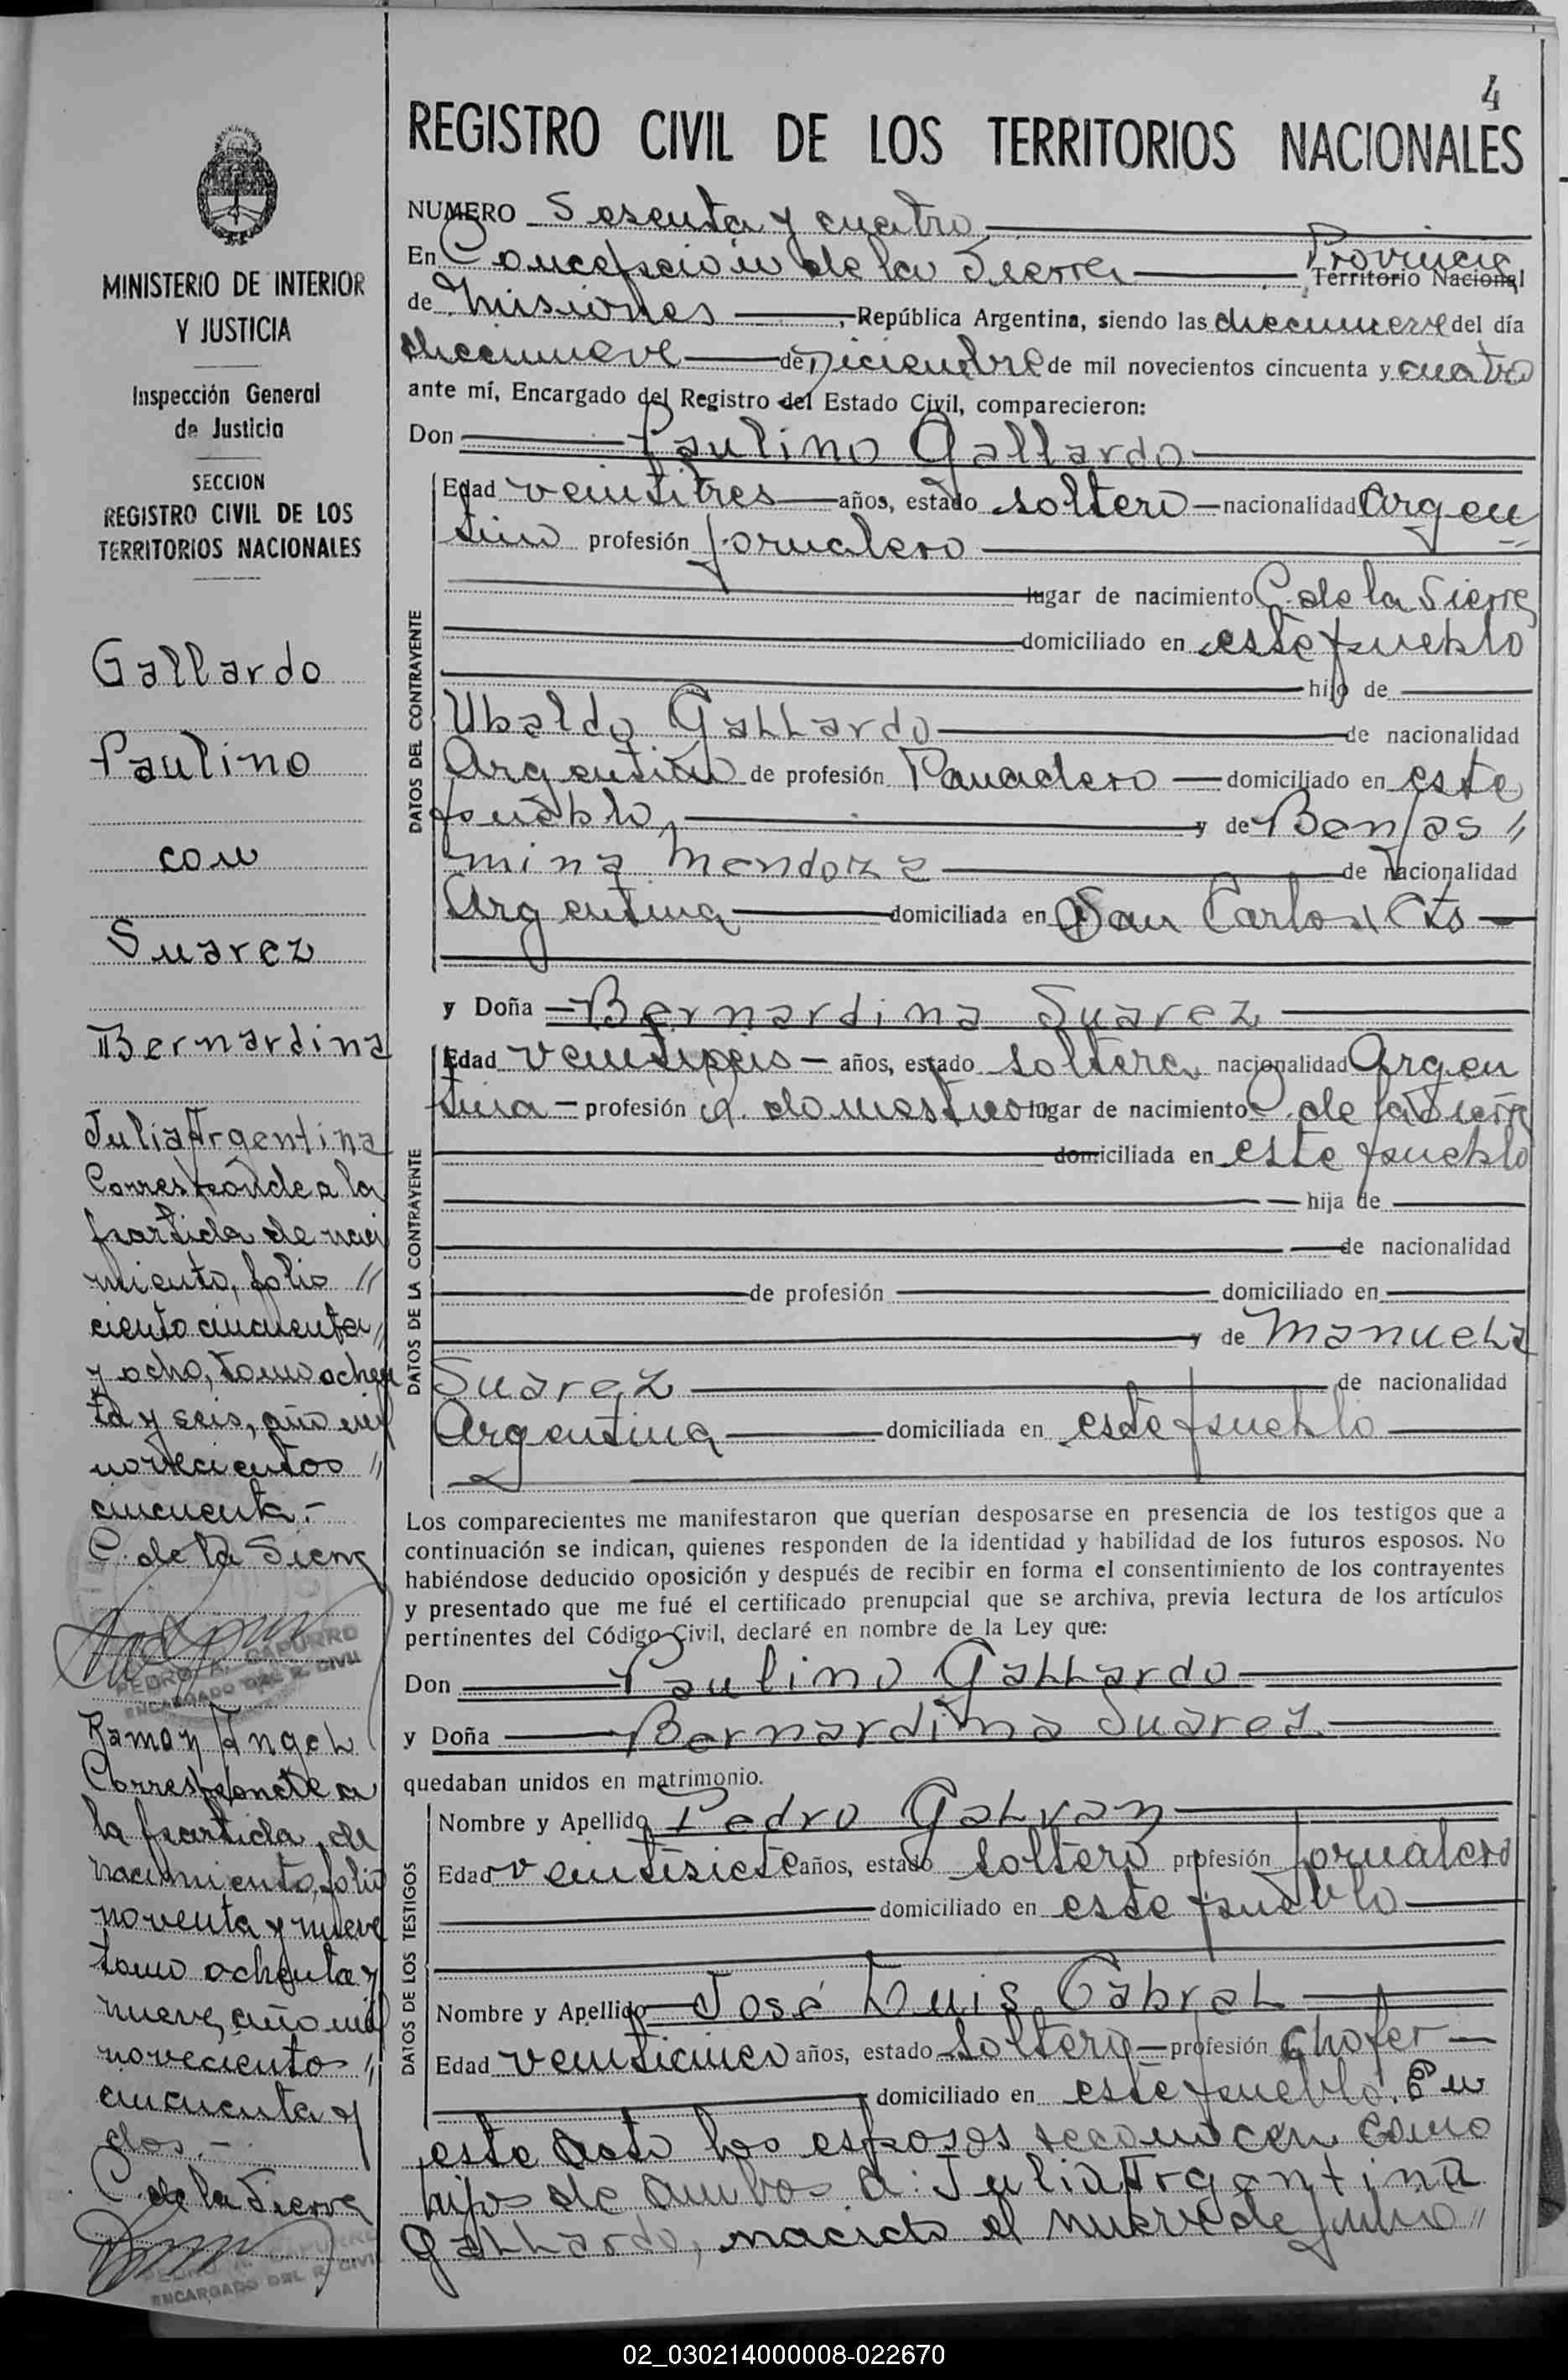 4
REGISTRO CIVIL DE LOS TERRITORIOS NACIONALES
NUMERO Sesenta y cuatro
En Concepción de la Sierra Provincia Territorio Nacional
de Misiones, República Argentina, siendo las diecinueve del día
diecinueve de Diciembre de mil novecientos cincuenta y cuatro
ante mí, Encargado del Registro del Estado Civil, comparecieron:
Don Paulino Gallardo
DATOS DEL CONTRAYENTE
Edad veintitres años, estado soltero nacionalidad Argen
tino profesión jornalero
lugar de nacimiento C. de la Sierra
domiciliado en este pueblo
hijo de
Ubaldo Gallardo de nacionalidad
Argentino de profesión Panadero domiciliado en este
pueblo, y de Benjas "
mina Mendoza de nacionalidad
Argentina domiciliada en San Carlos, Cts
y Doña Bernardina Suarez
DATOS DE LA CONTRAYENTE
Edad veintiseis años, estado soltera nacionalidad Argen
tina profesión q. domestico lugar de nacimiento C. de la Sierra
domiciliada en este pueblo
hija de
de nacionalidad
de profesión domiciliado en
y de Manuela
Suárez de nacionalidad
Argentina domiciliada en este pueblo
Los comparecientes me manifestaron que querían desposarse en presencia de los testigos que a
continuación se indican, quienes responden de la identidad y habilidad de los futuros esposos. No
habiéndose deducido oposición y después de recibir en forma el consentimiento de los contrayentes
y presentado que me fué el certificado prenupcial que se archiva, previa lectura de los artículos
pertinentes del Código Civil, declaré en nombre de la Ley que:
Don Paulino Gallardo
y Doña Bernardina Suárez
quedaban unidos en matrimonio.
DATOS DE LOS TESTIGOS
Nombre y Apellido Pedro Galvan
Edad veintisiete años, estado soltero profesión jornalero
domiciliado en este pueblo
Nombre y Apellido José Luis Cabral
Edad veinticinco años, estado soltero profesión chofer
domiciliado en este pueblo. En
este acto los esposos reconocen como
hijos de ambos a: Julia Argentina
Gallardo, nacida el nueve de Junio "
MINISTERIO DE INTERIOR
Y JUSTICIA
Inspección General
de Justicia
SECCION
REGISTRO CIVIL DE LOS
TERRITORIOS NACIONALES
Gallardo
Paulino
con
Suarez
Bernardina
Julia Argentina
Corresponde a la
partida de naci
miento, folio "
ciento cincuenta "
y ocho, tomo ochen
ta y seis, año mil
novecientos "
cincuenta.-
C. de la Sierra
PEDRO A. CAPURRO
ENCARGADO DEL R. CIVIL
Ramon Angel
Corresponde a
la partida de
nacimiento, folio
noventa y nueve
tomo ochenta y
nueve, año mil
novecientos "
cincuenta y
dos.-
C. de la Sierra
PEDRO A. CAPURRO
ENCARGADO DEL R. CIVIL
02_030214000008-022670